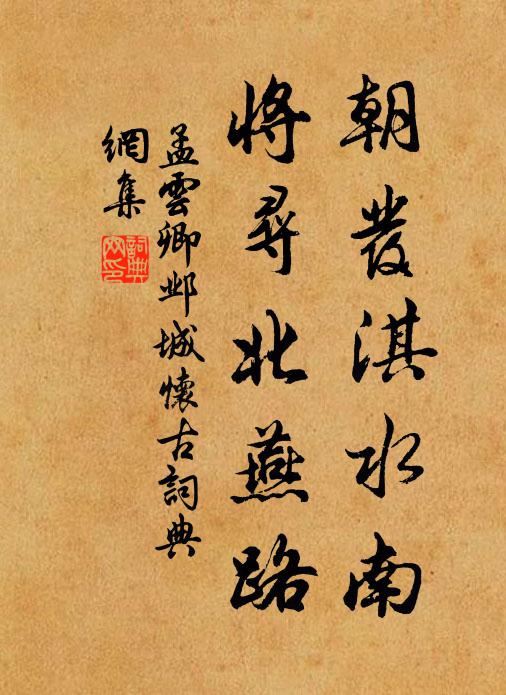 朝發淇水南
將尋北燕路
孟雲卿邺城懷古詞典
網集
詞典
网印